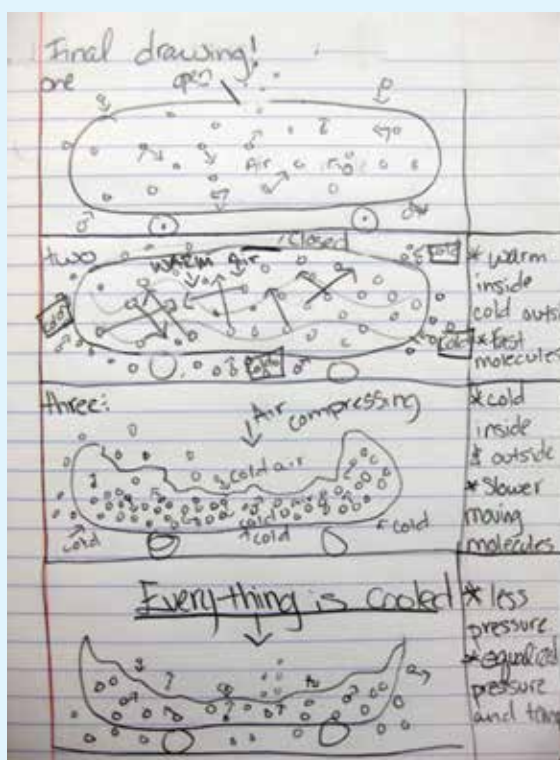 Final drawing!
one
open
Air
two
closed
warm air
cold
cold
cold
cold
* warm
inside
cold outsi
* fast
molecules
three:
Air
compressing
cold air
cold
cold
cold
cold
* cold
inside
& outside
* Slower
moving
molecules
Everything is cooled
* less
pressure
* equalized
pressure
and temp